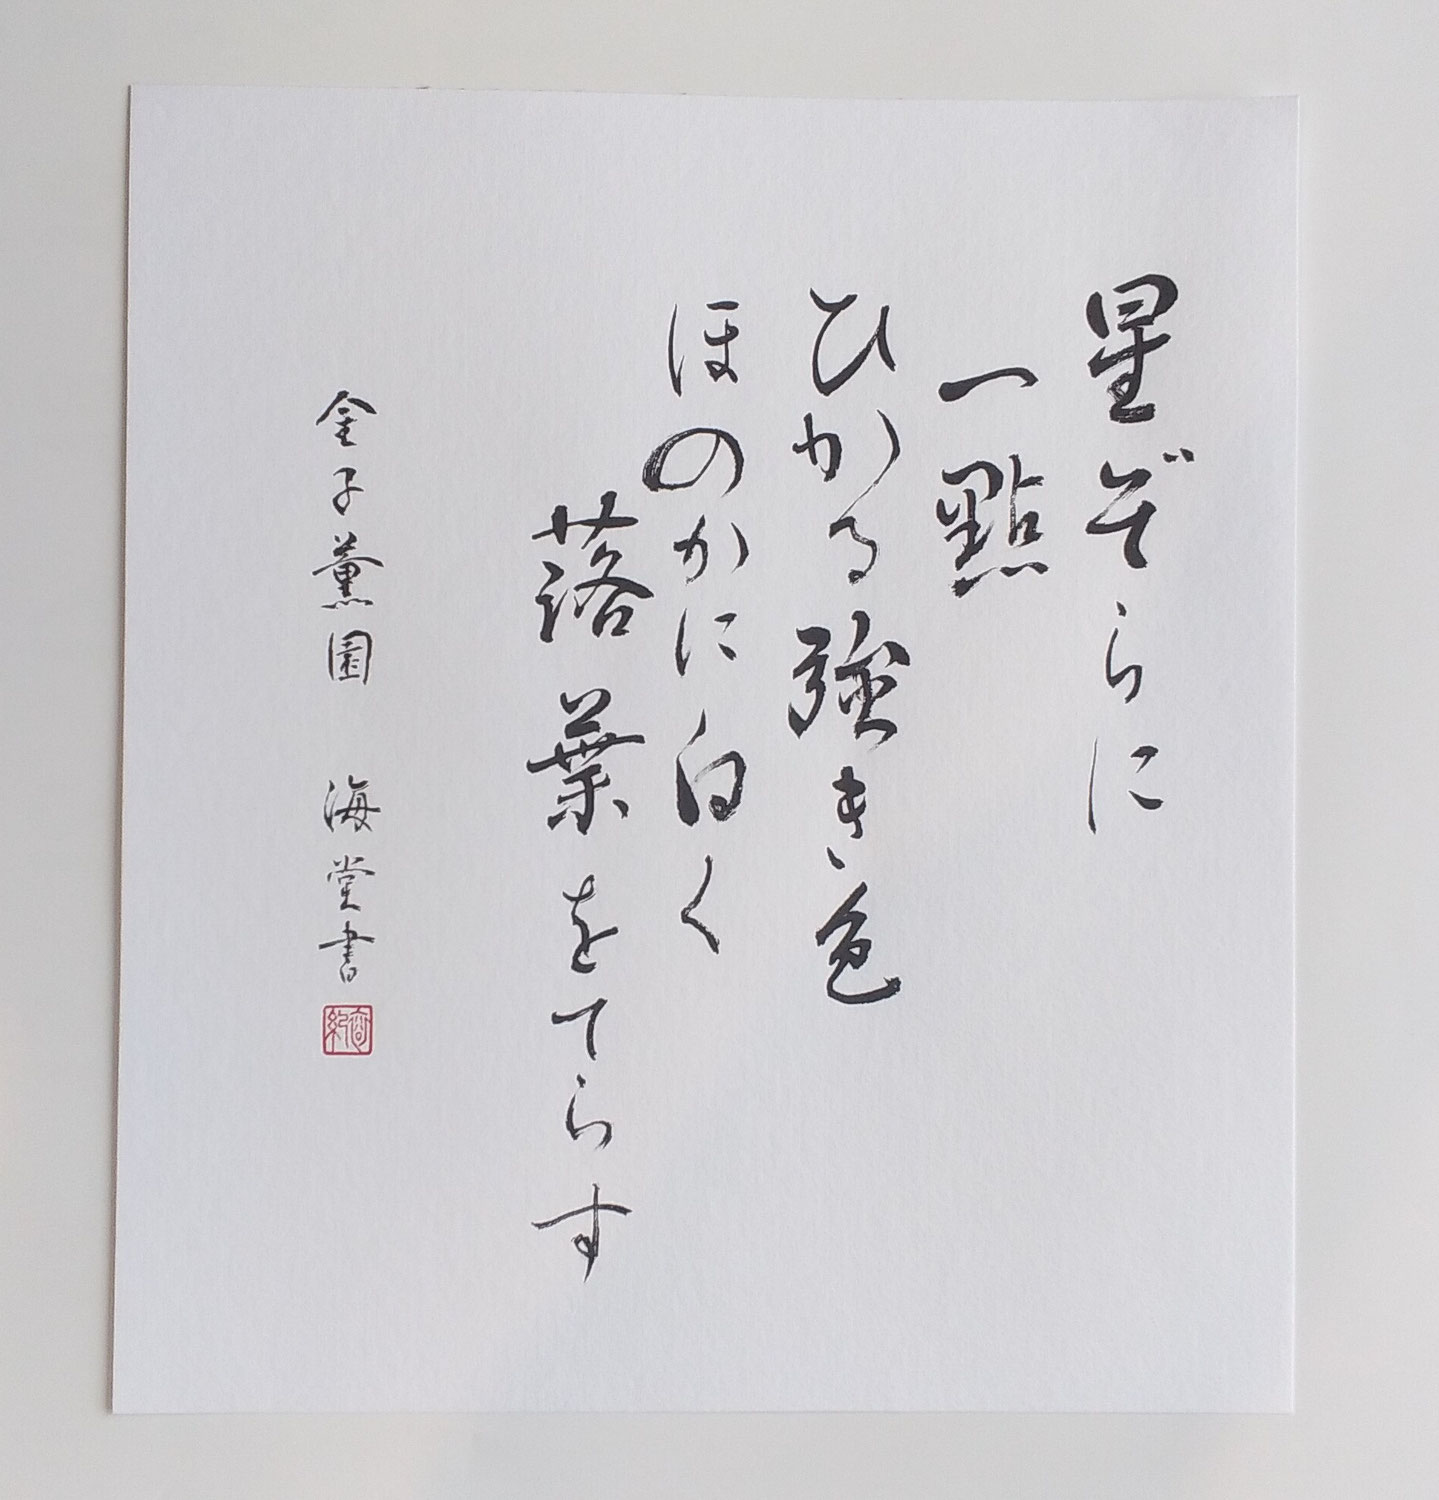 星ぞらに
一點
ひかる強き色
ほのかに白く
落葉をてらす
金子薫園 海堂書